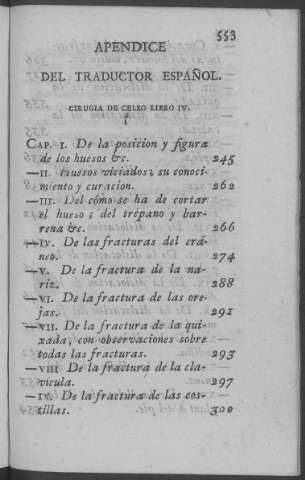 553
APENDICE
DEL TRADUCTOR ESPAÑOL.
CIRUGIA DE CELSO LIBRO IV.
CAP. I. De la posicion y figura
de los huesos &c. 245
—II. Huesos viciados; su conoci-
miento y curacion. 262
—III. Del cómo se ha de cortar
el hueso; del trépano y bar-
rena &c. 266
—IV. De las fracturas del crá-
neo. 274
—V. De la fractura de la na-
riz. 288
—VI. De la fractura de las ore-
jas. 291
—VII. De la fractura de la qui-
xada, con observaciones sobre
todas las fracturas. 293
—VIII De la fractura de la cla-
vicula. 297
—IX. De la fractura de las cos-
tillas. 300